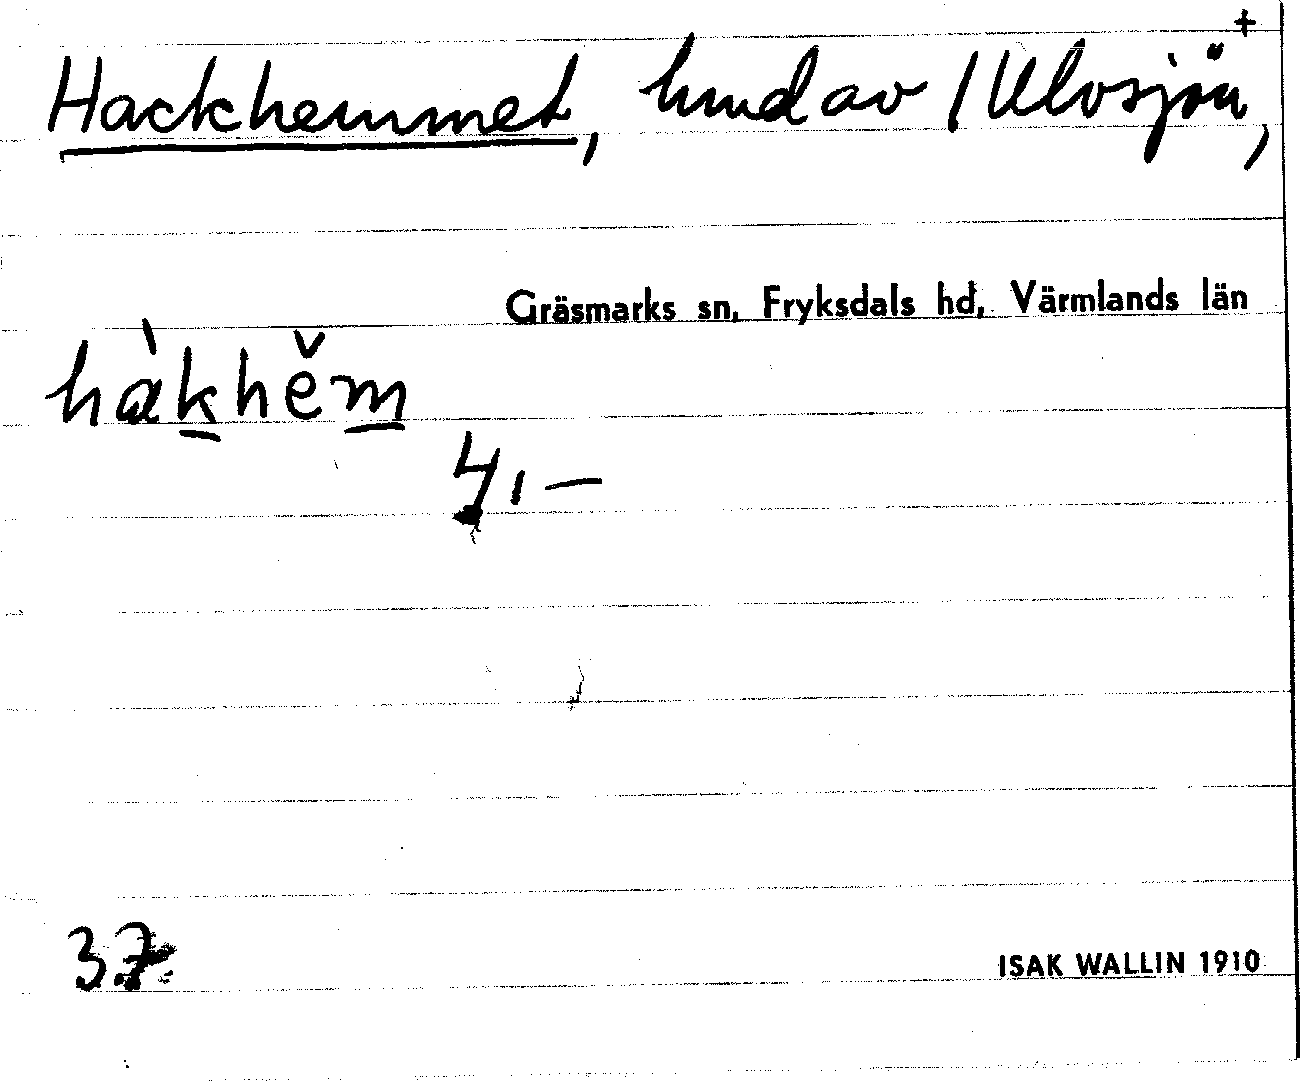 +
Hackhemmet, hmd av 1 Ulvsjön,
Gräsmarks sn, Fryksdals hd, Värmlands län
hàkhěm
4,—
37.
ISAK WALLIN 1910